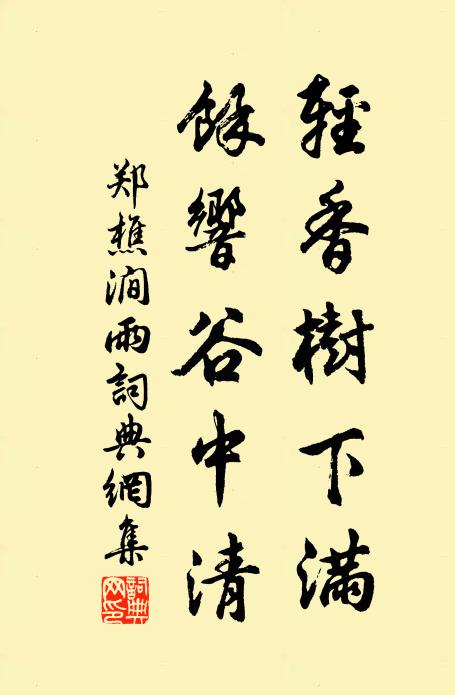 輕香樹下滿
餘響谷中清
郑樵澗雨詞典網集
詞典網印